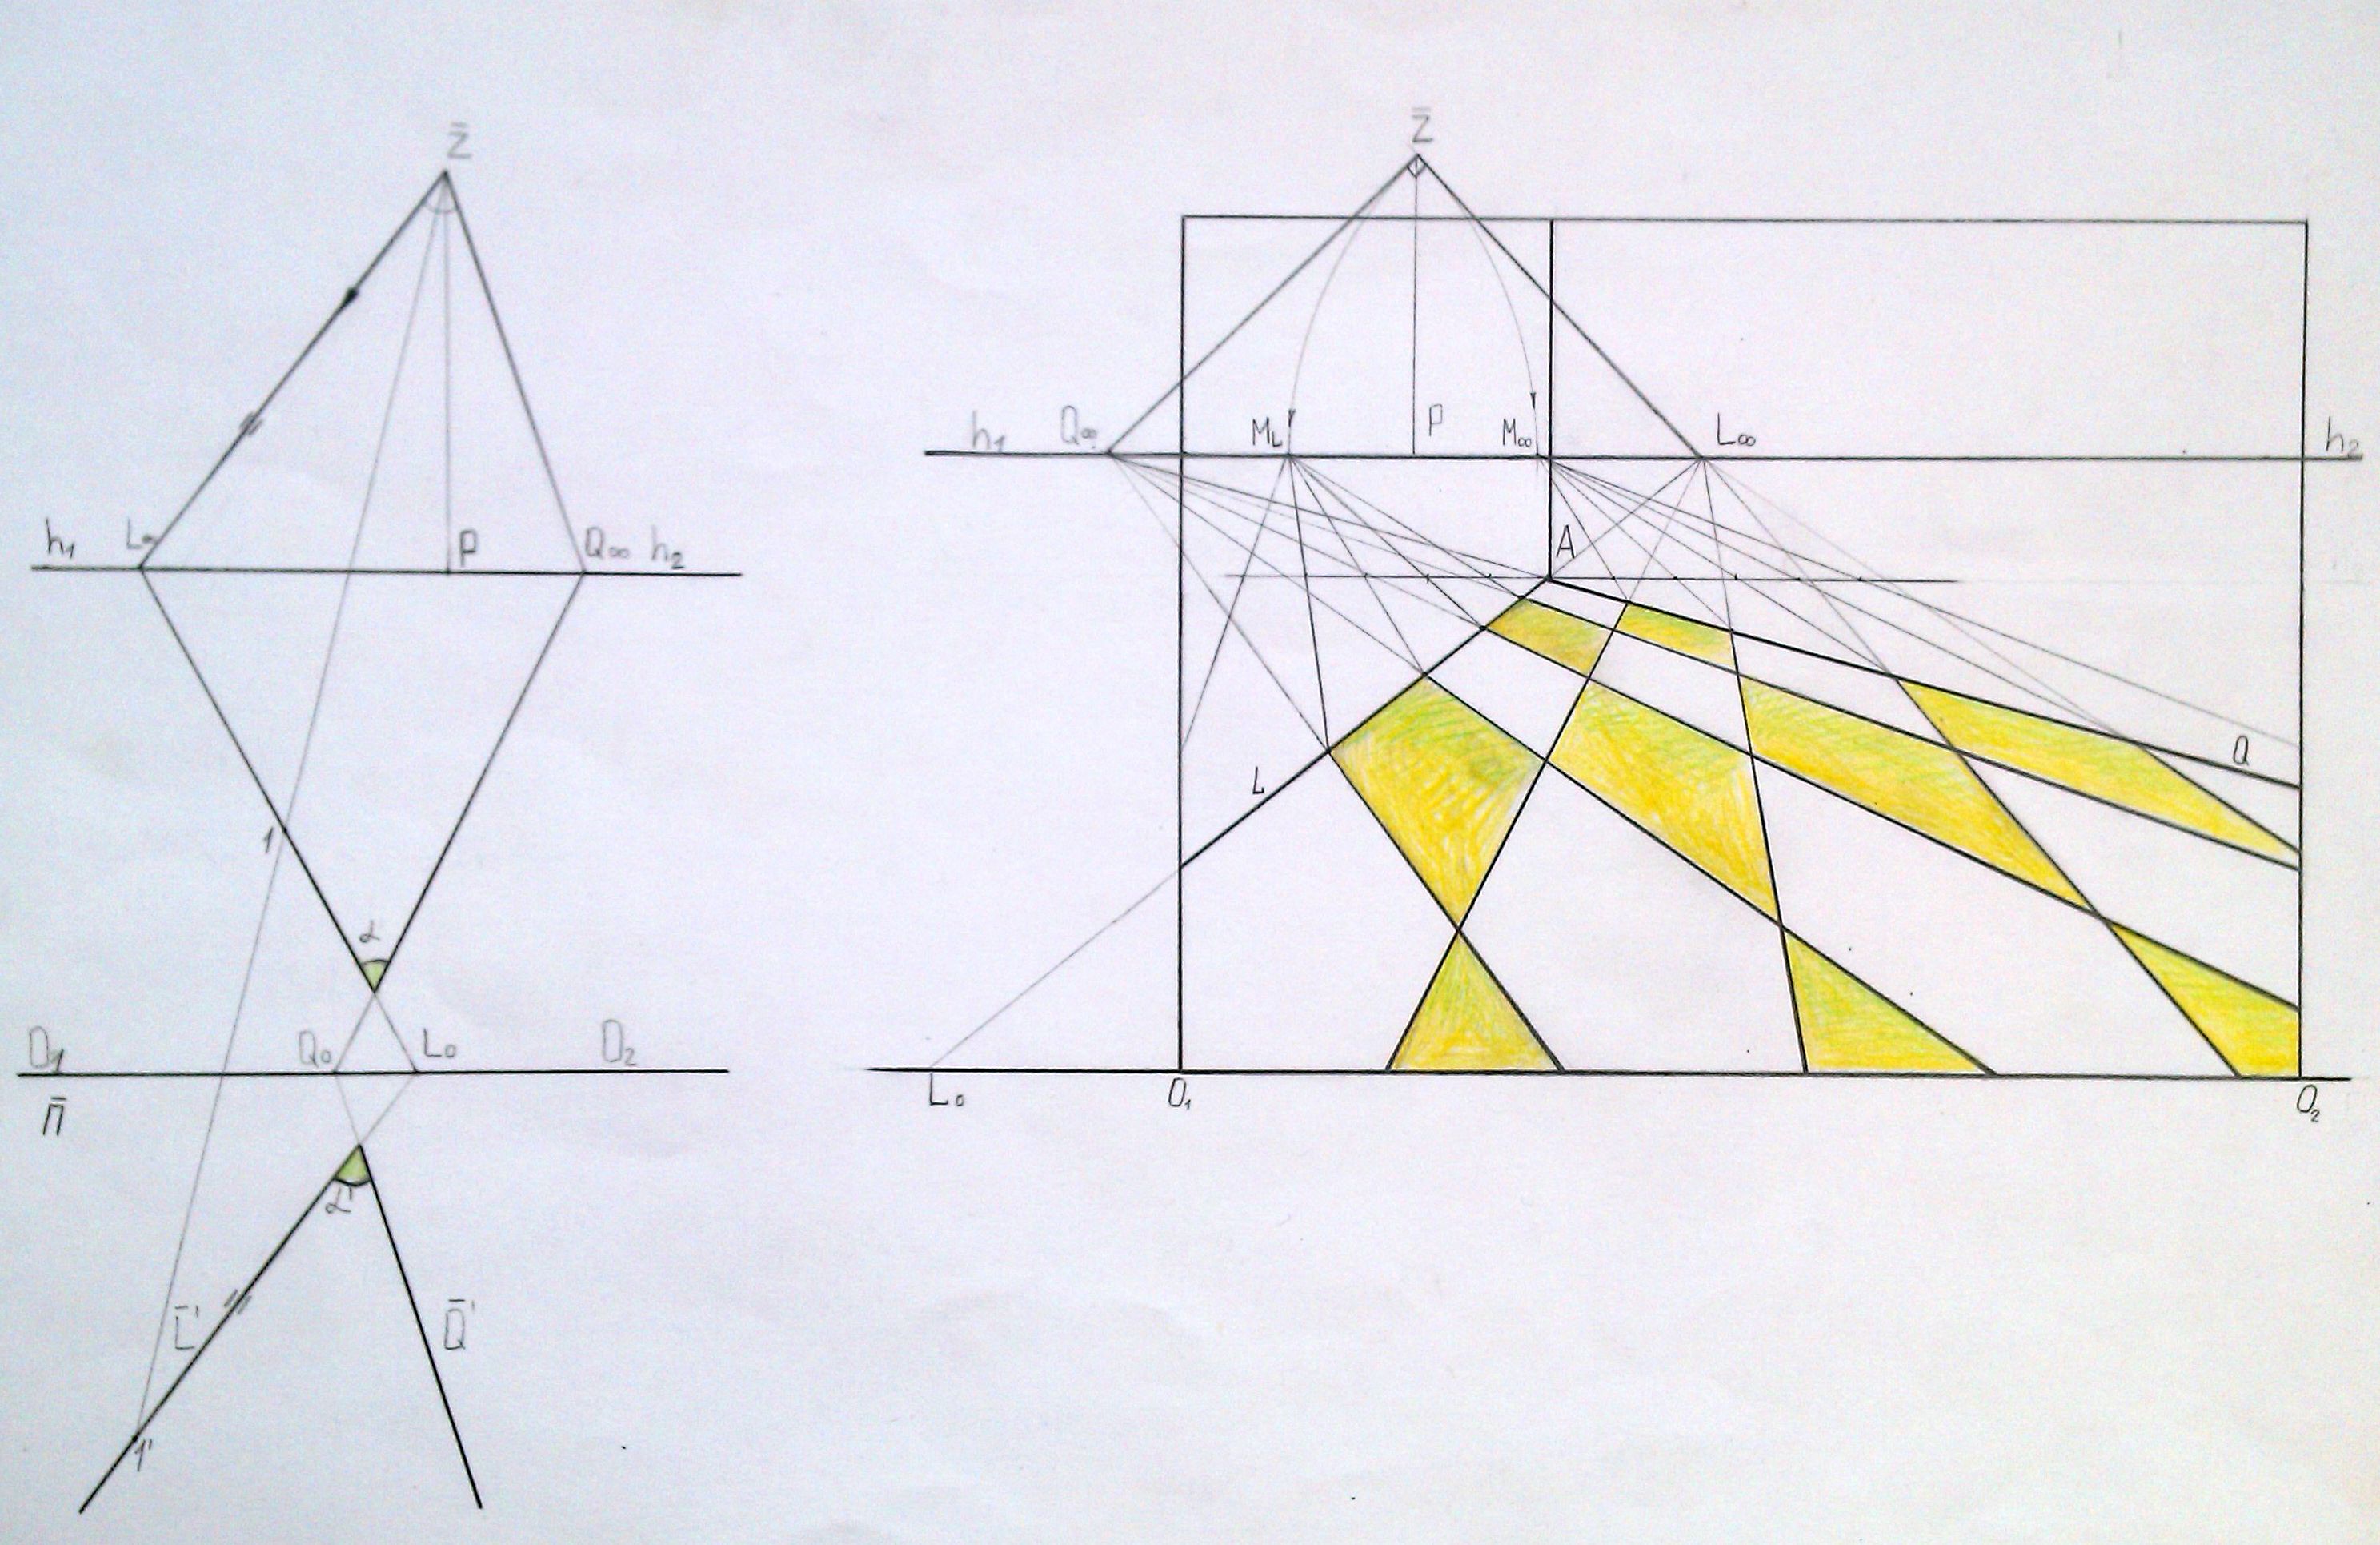 Z̄
h₁ L∞ P Q∞ h₂
1
α
O₁ Q₀ L₀ O₂
Π̄
α'
L̄' Q̄'
1'
Z̄
h₁ Q∞ M_L P M∞ L∞ h₂
A
Q
L
L₀ O₁ O₂